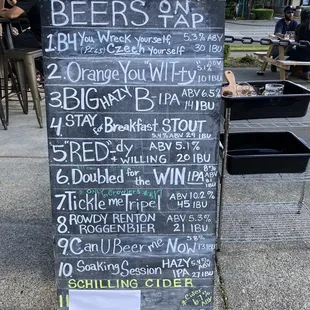 BEERS ON
TAP
1. B4 You Wreck yourself 5.3%
(Pils) Czech yourself 30 IBU
2. Orange You "WIT"ty 5.2%
10 IBU
3. BIG HAZY B- IPA ABV 6.5%
14 IBU
4. STAY for Breakfast STOUT
5.4% ABV 29 IBU
5. "RED"-dy ABV 5.1%
+ WILLING 20 IBU
6. Doubled for the WIN IPA
7. Tickle me Tripel ABV 10.2%
45 IBU
8. ROWDY RENTON ABV 5.3%
ROGGENBIER 21 IBU
9. Can U Beer me Now 5.8%
13 IBU
10. Soaking Session HAZY 5.4% ABV
IPA 27 IBU
SCHILLING CIDER
11